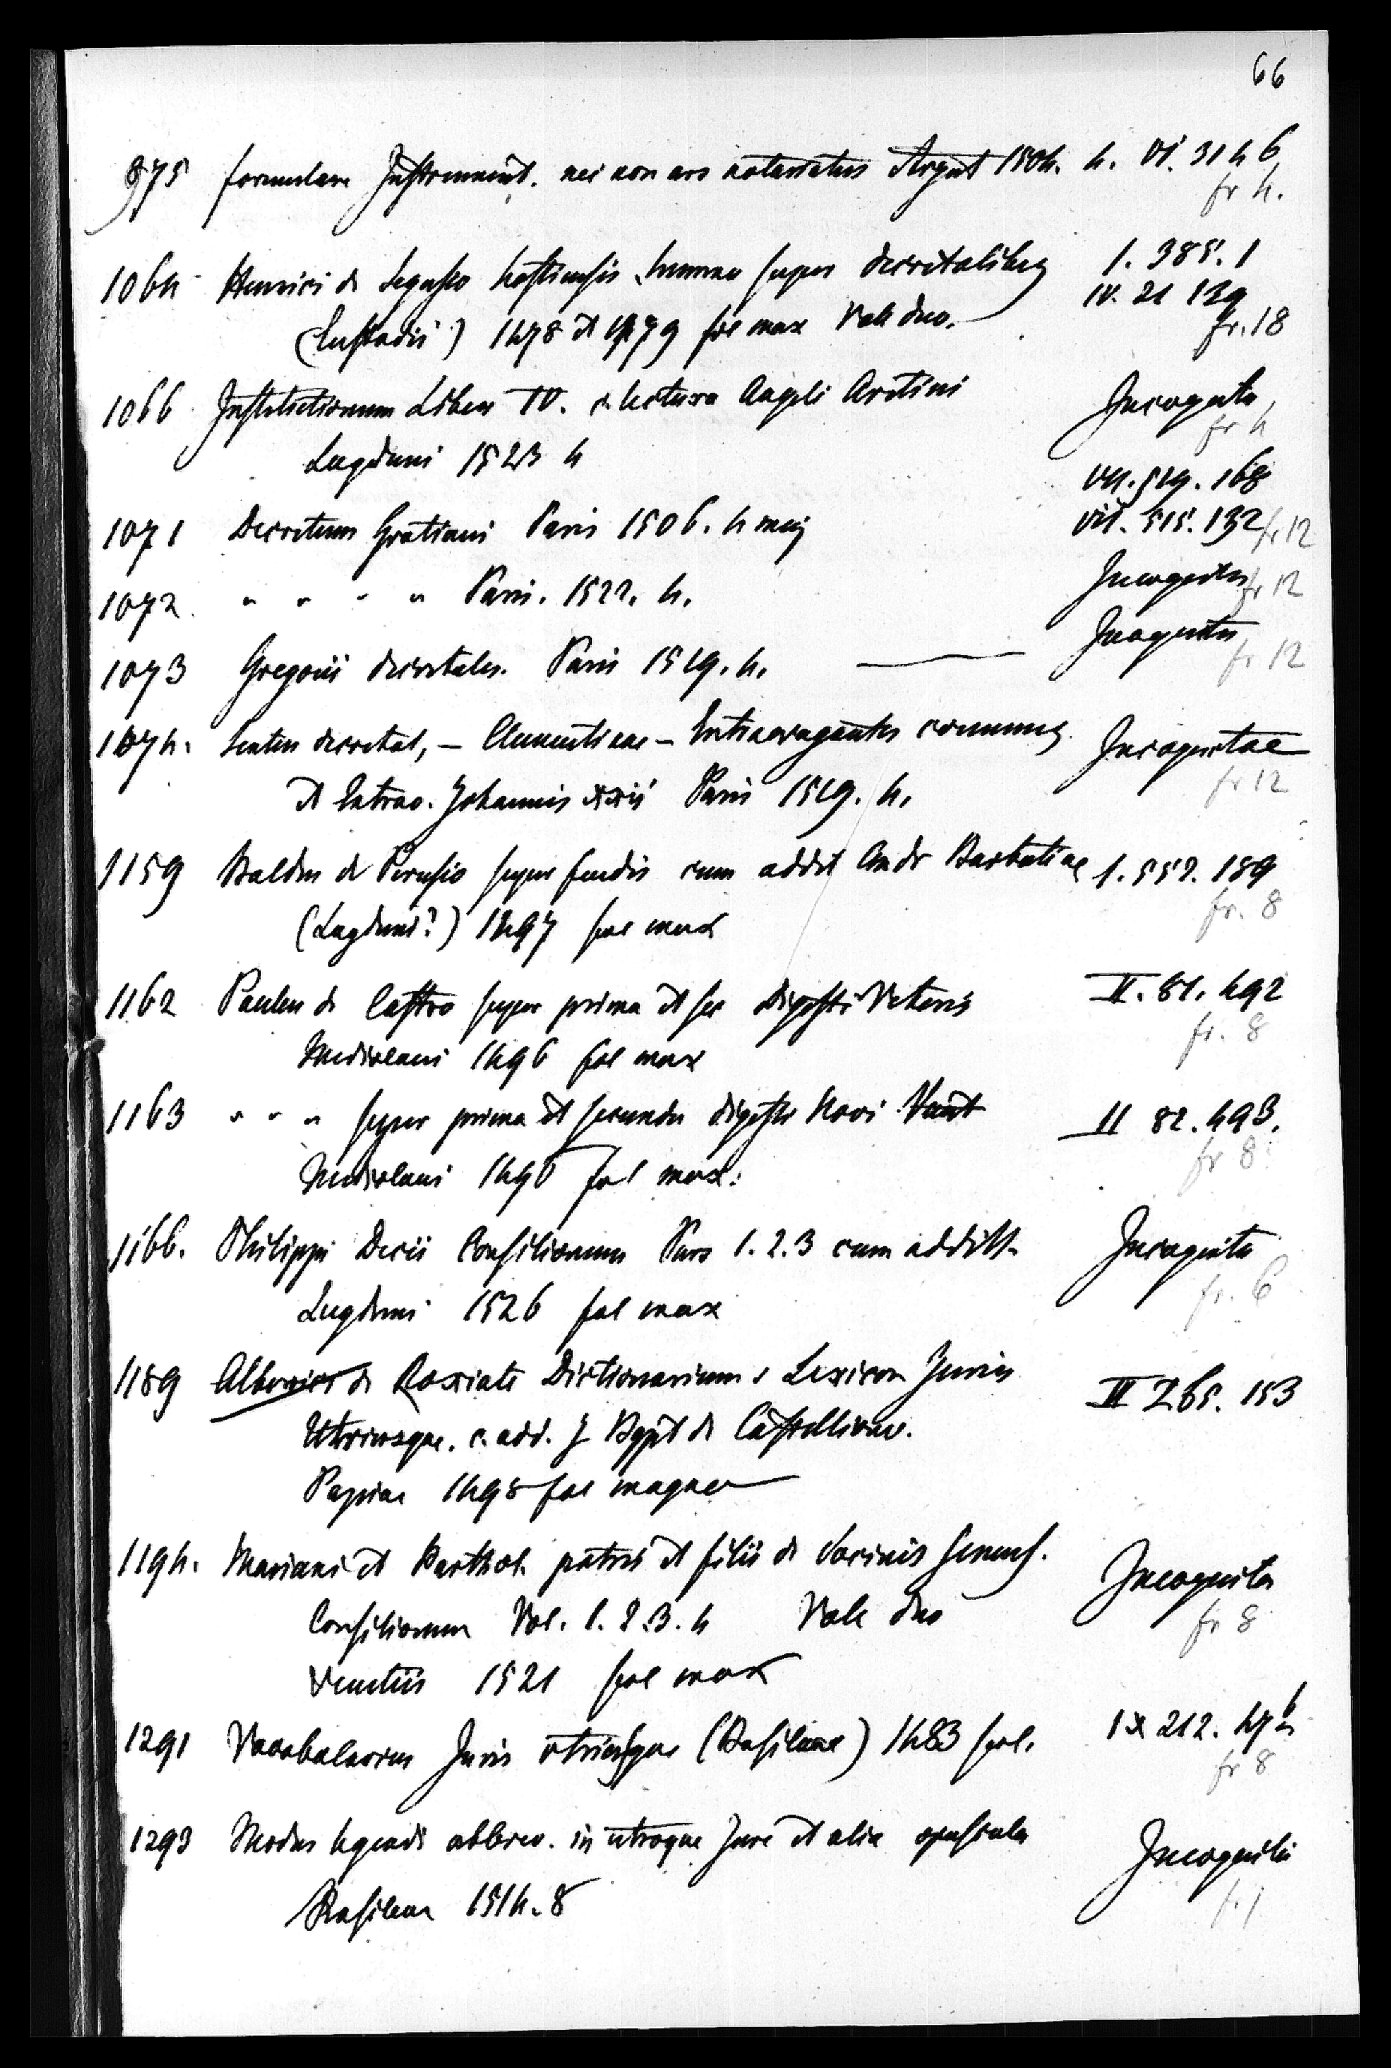 66
975 formulare Instrument. nec non ars notariatus Argent 1504. 4. VI. 31 46
fr 4.
1064 Henrici de Segusio hostiensis Summa super decretalibus I. 385. 1
IV. 21 139
(Eustadii?) 1478 et 1479 fol max Vol duo. fr. 18
1066 Institutionum Liber IV. c. lectura Angeli Aretini Incognita
fr 4
Lugduni 1523 4
VII. 519. 168
1071 Decretum Gratiani Paris 1506. 4 maj VII. 515. 132 fr 12
1072 " " " " Paris. 1522. 4. Incognitus fr 12
1073 Gregorii decretales. Paris 1519. 4. Incognitus fr 12
1074. Sextus decretal, – Clementinae – Extravagantes communes. Incognitae
et Extrav. Johannis xxii Paris 1519. 4. fr 12
1159 Baldus de Perusio super feudis cum addit Andr Barbatiae I. 552. 189
fr. 8
(Lugduni?) 1497 fol max
1162 Paulus de Castro super prima et sec Digesti Veteris II. 81. 492
fr. 8
Mediolani 1496 fol max
1163 " " " super prima et secunda digesti Novi II 82. 493.
fr 8
Mediolani 1496 fol max.
1166. Philippi Decii Consiliorum Pars 1. 2. 3 cum additt. Incognita
fr. 6
Lugduni 1526 fol max
1189 Albericus de Rosciate Dictionarium s Lexicon Juris III 265. 153
Utriusque. c. add. J Bapt de Castellione.
Papiae 1498 fol magno
1194. Mariani et Barthol. patris et filii de Socinis Senens. Incognita
Consiliorum Vol. 1. 2. 3. 4 Vole duo fr 8
Venetiis 1521 fol max
1291 Vocabularius Juris utriusque (Basileae) 1483 fol. IX 212. 476
fr 8
1293 Modus legendi abbrev. in utroque Jure et alia opuscula Incogniti
Basileae 1514. 8 fr 1